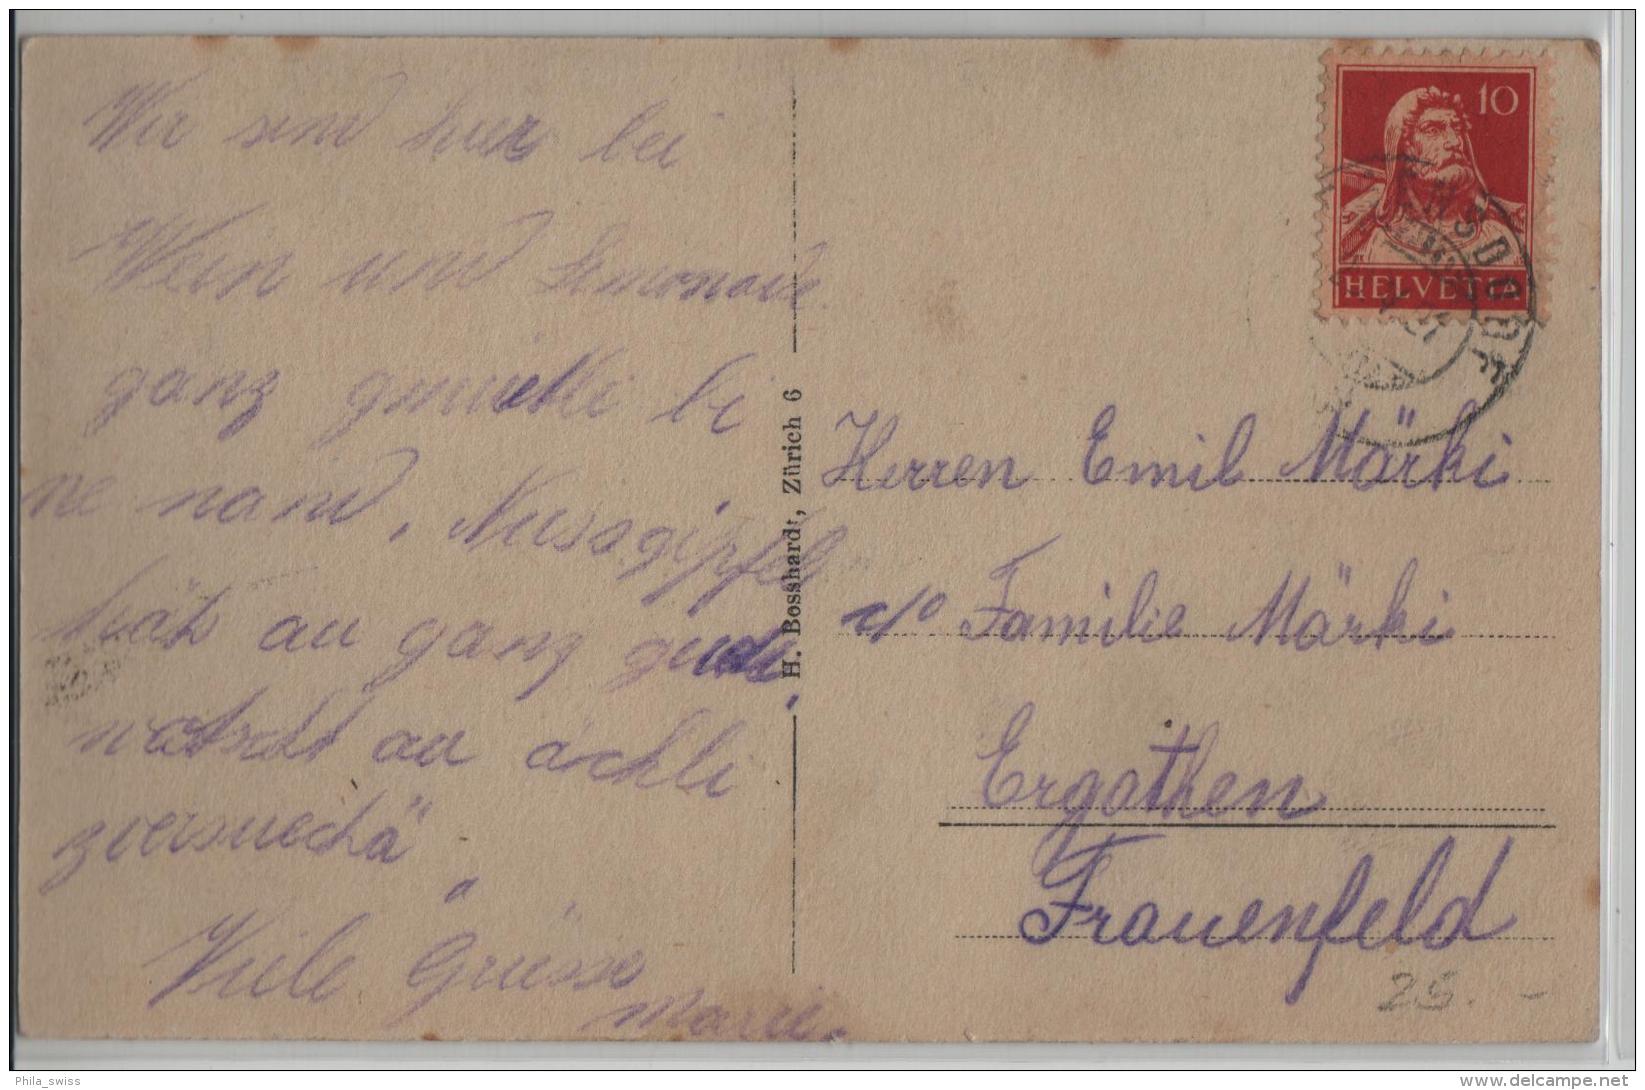 Wir sind hier bei
Wein und Limonade
ganz gmüetli bi
ne nand, Nussgipfel
häts au ganz gueti,
wotscht au ächli
zversuechä
Viele Grüsse
Marie.
H. Bosshardt, Zürich 6
10
HELVETIA
Herren Emil Märki
c/o Familie Märki
Ergathen
Frauenfeld
25.-
Phila_swiss
delcampe.net